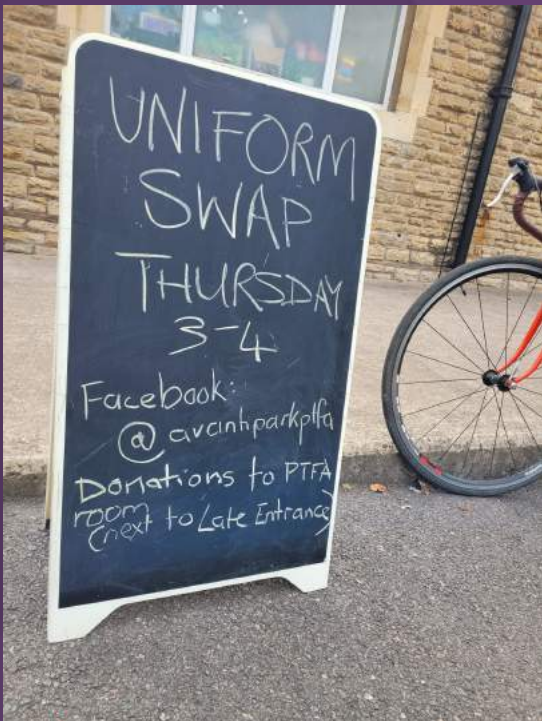 UNIFORM
SWAP
THURSDAY
3-4
Facebook:
@avantiparkptfa
Donations to PTFA
room
(next to Late Entrance)